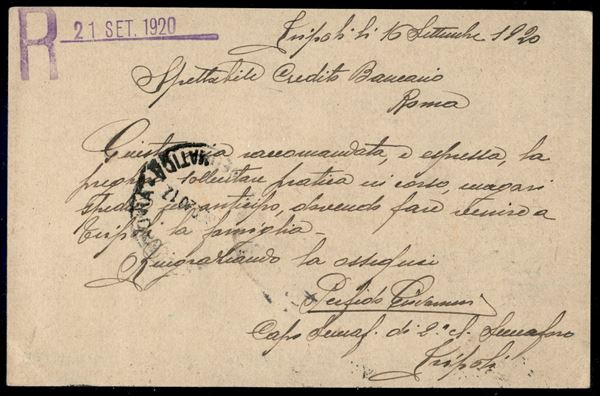 R 21 SET. 1920
Tripoli li 16 Settembre 1920
Spettabile Credito Bancario
Roma
Questa mia raccomandata, e espressa, la
prego sollecitare pratica in corso, magari
anticipo, dovendo fare venire a
Tripoli la famiglia.
Ringraziando la ossequi
Giovanni
Capo Semaf. di 2ª cl. Semaforo
Tripoli